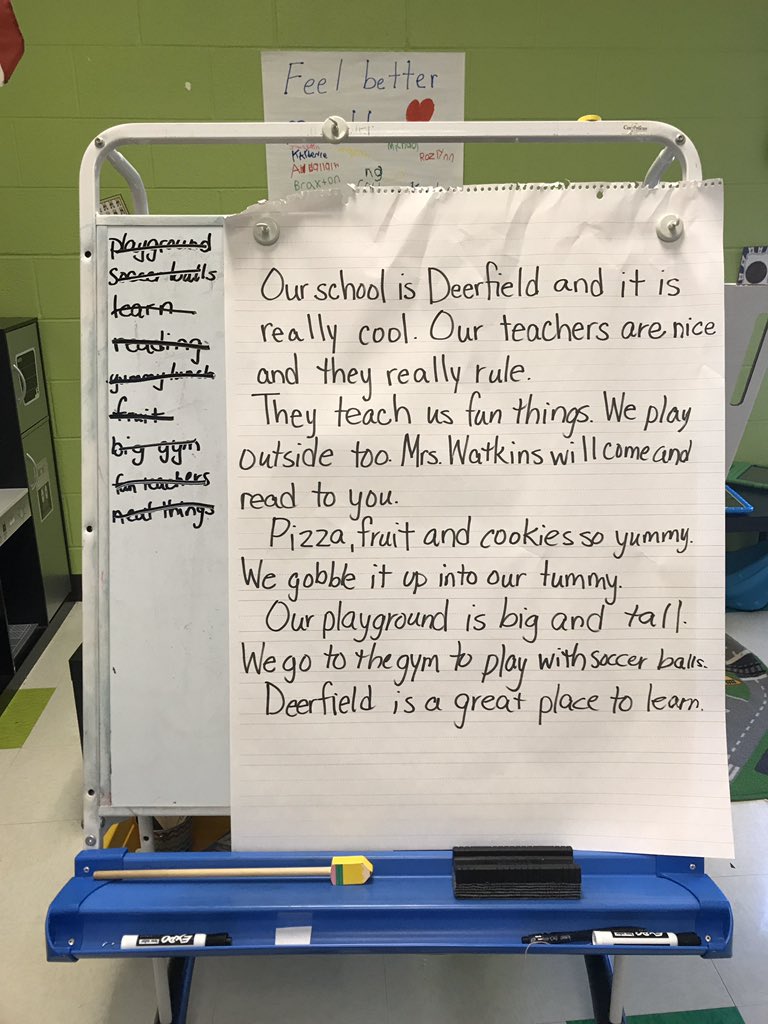 Feel better
Katherine
Michael
Abdallah
Rozlynn
Braxton
ng
playground
soccer balls
learn
reading
yummy lunch
fruit
big gym
fun teachers
neat things
Our school is Deerfield and it is
really cool. Our teachers are nice
and they really rule.
They teach us fun things. We play
outside too. Mrs. Watkins will come and
read to you.
Pizza, fruit and cookies so yummy.
We gobble it up into our tummy.
Our playground is big and tall.
We go to the gym to play with soccer balls.
Deerfield is a great place to learn.
EXPO
EXPO